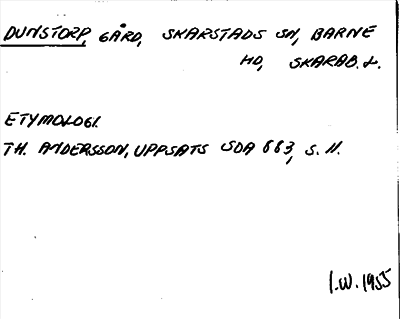 DUNSTORP, GÅRD, SKARSTADS SN, BARNE
HD, SKARAB. L.
ETYMOLOGI.
TH. ANDERSSON, UPPSATS SOA 663, S. 11.
I.W. 1955